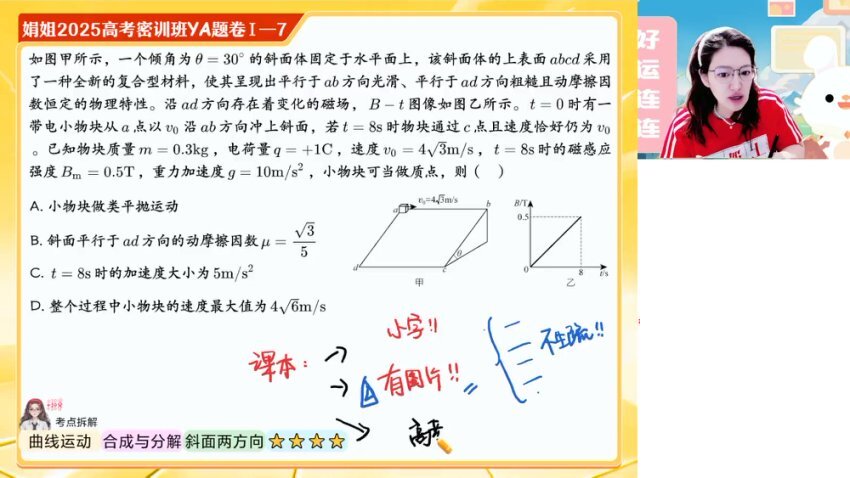 娟姐2025高考密训班YA题卷I—7
如图甲所示，一个倾角为θ=30°的斜面体固定于水平面上，该斜面体的上表面abcd采用
了一种全新的复合型材料，使其呈现出平行于ab方向光滑、平行于ad方向粗糙且动摩擦因
数恒定的物理特性。沿ad方向存在着变化的磁场，B-t图像如图乙所示。t=0时有一
带电小物块从a点以v₀沿ab方向冲上斜面，若t=8s时物块通过c点且速度恰好仍为v₀
。已知物块质量m=0.3kg，电荷量q=+1C，速度v₀=4√3m/s，t=8s时的磁感应
强度Bm=0.5T，重力加速度g=10m/s²，小物块可当做质点，则（ ）
A. 小物块做类平抛运动
B. 斜面平行于ad方向的动摩擦因数μ=√3/5
C. t=8s时的加速度大小为5m/s²
D. 整个过程中小物块的速度最大值为4√6m/s
a
v₀=4√3m/s
b
θ
d
c
甲
B/T
0.5
0
8
t/s
乙
小字!!
课本：
有图片!!
=
不生疏!!
高考
考点拆解
曲线运动 合成与分解 斜面两方向
好运连连